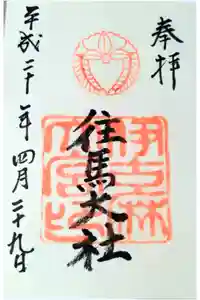 奉拝
往馬大社
平成二十一年四月二十九日